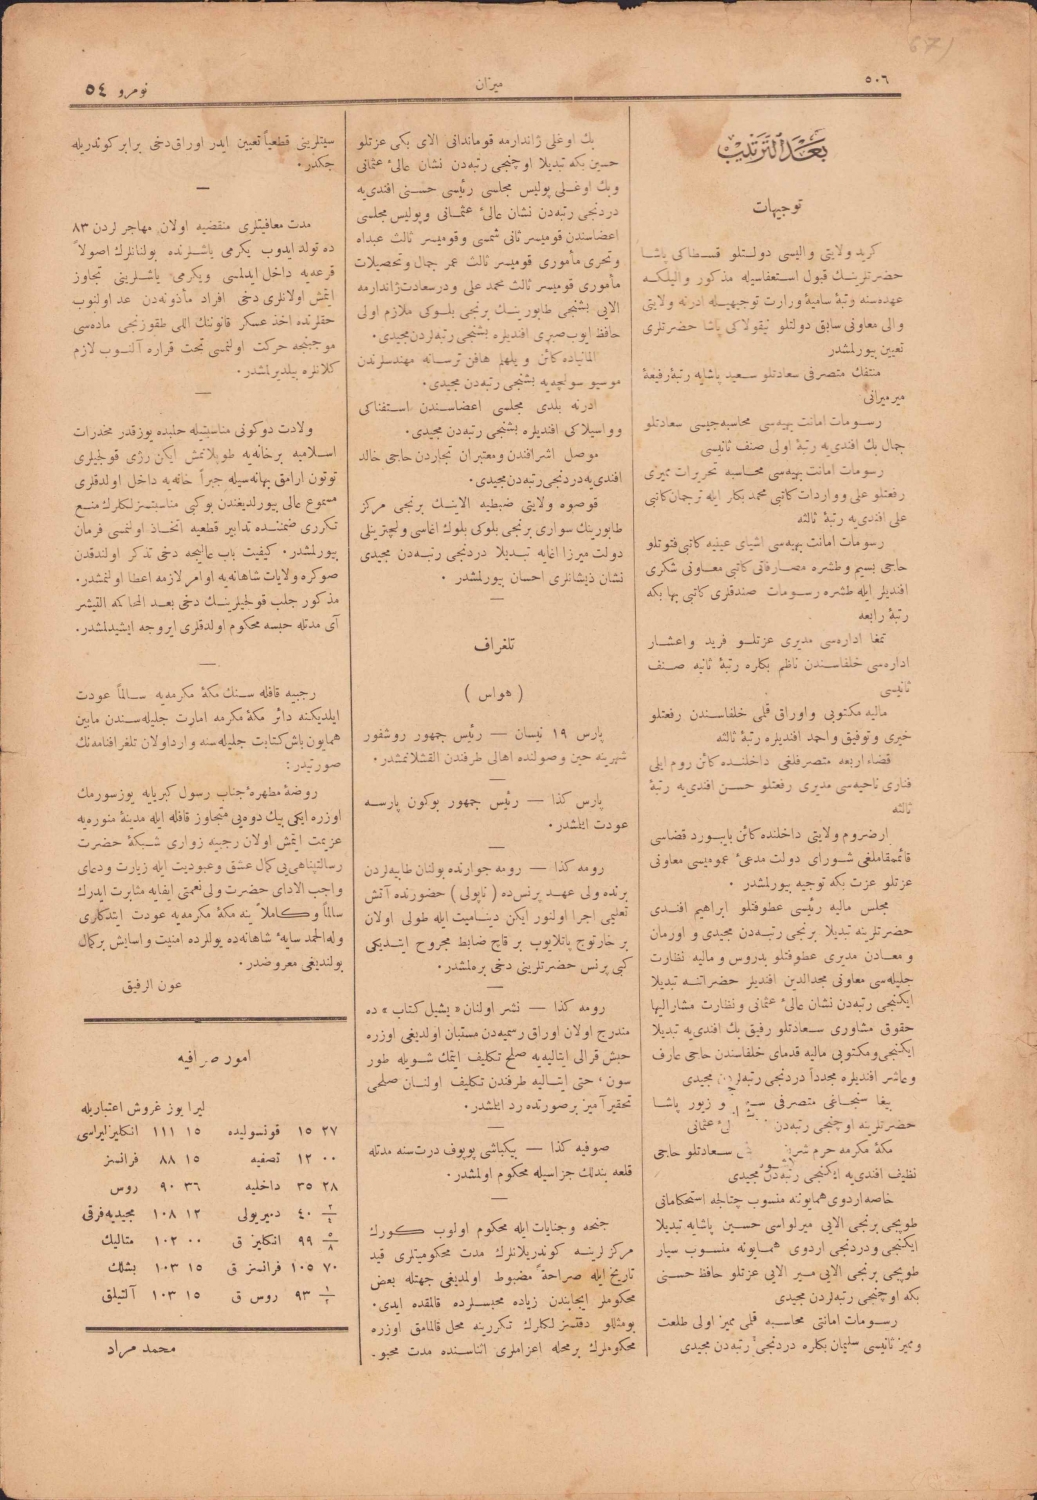 ٥٠٦
ميزان
نومرو ٥٤
بعد الترتيب
توجيهات
كريد ولايتى واليسى دولتلو قسطاكى پاشا
حضرتلرينك قبول استعفاسيله مذكور واليلكه
عهده‌سنه رتبۀ ساميۀ وزارت توجيهيله ادرنه ولايتى
والى معاونى سابق دولتلو نيقولاكى پاشا حضرتلرى
تعيين بيورلمشدر
منتفك متصرفى سعادتلو سعيد پاشايه رتبۀ رفيعۀ
ميرميرانى
رسومات امانت بهيه‌سى محاسبه‌جيسى سعادتلو
جمال بك افندى‌يه رتبۀ اولى صنف ثانيسى
رسومات امانت بهيه‌سى محاسبه تحريرات مميزى
رفعتلو على وواردات كاتبى محمد بكلر ايله ترجمان كاتبى
على افندى‌يه رتبۀ ثالثه
رسومات امانت بهيه‌سى اشياى عينيه كاتبى فتوتلو
حاجى بسيم وطشره مصارفاتى كاتبى معاونى شكرى
افنديلر ايله طشره رسومات صندقلرى كاتبى بها بكه
رتبۀ رابعه
تمغا اداره‌سى مديرى عزتلو فريد واعشار
اداره‌سى خلفاسندن ناظم بكلره رتبۀ ثانيه صنف
ثانيسى
ماليه مكتوبى واوراق قلمى خلفاسندن رفعتلو
خيرى وتوفيق واحمد افنديلره رتبۀ ثالثه
قضاء اربعه متصرفلغى داخلنده كائن روم ايلى
فنارى ناحيه‌سى مديرى رفعتلو حسن افندى‌يه رتبۀ
ثالثه
ارضروم ولايتى داخلنده كائن بايبورد قضاسى
قائمقاملغى شوراى دولت مدعئ عموميسى معاونى
عزتلو عزت بكه توجيه بيورلمشدر .
مجلس ماليه رئيسى عطوفتلو ابراهيم افندى
حضرتلرينه تبديلا برنجى رتبه‌دن مجيدى و اورمان
و معادن مديرى عطوفتلو بدروس و ماليه نظارت
جليله‌سى معاونى مجدالدين افنديلر حضراتنه تبديلا
ايكنجى رتبه‌دن نشان عالئ عثمانى ونظارت مشاراليها
حقوق مشاورى سعادتلو رفيق بك افندى‌يه تبديلا
ايكنجى ومكتوبى ماليه قدماى خلفاسندن حاجى عارف
وعاشر افنديلره مجدداً دردنجى رتبه‌لردن مجيدى
بيغا سنجاغى متصرفى و زيور پاشا
حضرتلرينه اوچنجى رتبه‌دن عثمانى
مكۀ مكرمه حرم سعادتلو حاجى
نظيف افندى‌يه ايكنجى رتبه‌دن مجيدى
خاصه اردوى همايونه منسوب چتالجه استحكاماتى
طوپجى برنجى الايى ميرلواسى حسين پاشايه تبديلا
ايكنجى ودردنجى اردوى همايونه منسوب سيار
طوپجى برنجى الايى مير الايى عزتلو حافظ حسنى
بكه اوچنجى رتبه‌لردن مجيدى
رسومات امانتى محاسبه قلمى مميز اولى طلعت
ومميز ثانيسى سليمان بكلره دردنجى رتبه‌دن مجيدى
بك اوغلى ژاندارمه قومانداني الاى بكى عزتلو
حسين بكه تبديلا اوچنجى رتبه‌دن نشان عالئ عثمانى
وبك اوغلى پوليس مجلسى رئيسى حسنى افندى‌يه
دردنجى رتبه‌دن نشان عالئ عثمانى وپوليس مجلسى
اعضاسندن قوميسر ثانى شمسى وقوميسر ثالث عبدالله
وتحرى مأمورى قوميسر ثالث عمر جمال وتحصيلات
مأمورى قوميسر ثالث محمد على ودرسعادت ژاندارمه
الايى بشنجى طابورينك برنجى بلوكى ملازم اولى
حافظ ايوب صبرى افنديلره بشنجى رتبه‌لردن مجيدى.
المانياده كائن ويلهلم هافن ترسانه مهندسلرندن
موسيو سولچه‌يه بشنجى رتبه‌دن مجيدى.
ادرنه بلدى مجلسى اعضاسندن استفناكى
وواسيلاكى افنديلره بشنجى رتبه‌دن مجيدى.
موصل اشرافندن ومعتبران تجاردن حاجى خالد
افندى‌يه دردنجى رتبه‌دن مجيدى.
قوصوه ولايتى ضبطيه الاينك برنجى مركز
طابورينك سوارى برنجى بلوكى بلوك اغاسى
دولت ميرزا اغايه تبديلا دردنجى رتبه‌دن مجيدى
نشان ذيشانلرى احسان بيورلمشدر .
تلغراف
( هواس )
پارس ١٩ نيسان — رئيس جمهور روشفور
شهرينه حين وصولنده اهالى طرفندن القشلانمشدر.
پارس كذا — رئيس جمهور بوكون پارسه
عودت ايتمشدر.
رومه كذا — رومه جوارنده بولنان طابيه‌لردن
برنده ولى عهد پرنس‌ده ( ناپولى ) حضورنده آتش
تعليمى اجرا اولنور ايكن ديناميت ايله طولى اولان
بر خارتوج پاتلايوب بر قاچ ضابط مجروح ايتديكى
كبى پرنس حضرتلرينى دخى بره‌لمشدر.
رومه كذا — نشر اولنان «يشيل كتاب» ده
مندرج اولان اوراق رسميه‌دن مستبان اولديغى اوزره
حبش قرالى ايتاليه‌يه صلح تكليف ايتمك شويله طور
سون، حتى ايتاليه طرفندن تكليف اولنان صلحى
تحقيرآميز برصورتده رد ايتمشدر.
صوفيه كذا — بيكباشى پوپوف درت سنه مدتله
قلعه بندلك جزاسيله محكوم اولمشدر.
جنحه وجنايات ايله محكوم اولوب كورك
مركز لرينه كوندريلانلرك مدت محكوميتلرى قيد
تاريخ ايله صراحةً مضبوط اولمديغى جهتله بعض
محكوملر ايجابندن زياده محبسلرده قالمقده ايدى.
بومثللو دقتسز لكلرك تكررينه محل قالمامق اوزره
محكوملرك برمحله اعزاملرى اثناسنده مدت محبو-
سيتلرينى قطعياً تعيين ايدر اوراق دخى برابر كوندريله
جكدر.
مدت معافيتلرى منقضيه اولان مهاجر لردن ٨٣
ده تولد ايدوب يكرمى ياشلرنده بولنانلرك اصولاً
قرعه‌يه داخل ايدلمسى ويكرمى ياشلرينى تجاوز
ايتمش اولانلرى دخى افراد مأذونه‌دن عد اولنوب
حقلرنده اخذ عسكر قانوننك اللى طقوزنجى ماده‌سى
موجبنجه حركت اولنمسى تحت قراره آلنوب لازم
كلانلره بيلديرلمشدر.
ولادت دوكونى مناسبتيله حلبده يوزقدر مخدرات
اسلاميه برخانه‌يه طوپلانمش ايكن رژى قولجيلرى
توتون ارامق بهانه‌سيله جبراً خانه‌يه داخل اولدقلرى
مسموع عالى بيورلديغندن بوكبى مناسبتسزلكلرك منع
تكررى ضمننده تدابير قطعيه اتخاذ اولنمسى فرمان
بيورلمشدر. كيفيت باب عاليجه دخى تذكر اولندقدن
صوكره ولايات شاهانه‌يه اوامر لازمه اعطا اولنمشدر.
مذكور جلب قولجيلرينك دخى بعد المحاكمه التيشر
آى مدتله حبسه محكوم اولدقلرى ايروجه ايشيدلمشدر.
رجبيه قافله سنك مكۀ مكرمه‌يه سالماً عودت
ايلديكنه دائر مكۀ مكرمه امارت جليله‌سندن مابين
همايون باش كتابت جليله‌سنه واردا ولان تلغرافنامه‌نك
صورتيدر:
روضۀ مطهرۀ جناب رسول كبريايه يوزسورمك
اوزره ايكى بيك دوه‌يى متجاوز قافله ايله مدينۀ منوره‌يه
عزيمت ايتمش اولان رجبيه زوارى شبكۀ حضرت
رسالتپناهى‌يى كمال عشق وعبوديت ايله زيارت ودعاى
واجب الاداى حضرت ولى نعمتى ايفايه مثابرت ايدرك
سالماً وكاملاً ينه مكۀ مكرمه‌يه عودت ايتدكلرى
وله‌الحمد سايۀ شاهانه‌ده يوللرده امنيت واسايش بركمال
بولنديغى معروضدر.
عون الرفيق
امور صرافيه
ليرا يوز غروش اعتباريله
٢٧ ١٥ قونسوليده ١٥ ١١١ انكليز ليراسى
٠٠ ١٢ تصفيه ١٥ ٨٨ فرانسز
٢٨ ٣٥ داخليه ٣٦ ٩٠ روس
٣/٤ ٤٠ دميريولى ١٢ ١٠٨ مجيديه فرقى
٥/٨ ٩٩ انكليز ق ٠٠ ١٠٢ متاليك
٧٠ ١٠٥ فرانسز ق ١٥ ١٠٣ بشلك
١/٢ ٩٣ روس ق ١٥ ١٠٣ آلتيلق
محمد مراد